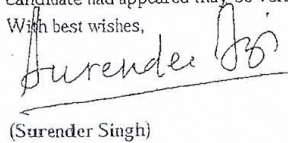 candidate had appeared may be
With best wishes,
Surender
(Surender Singh)